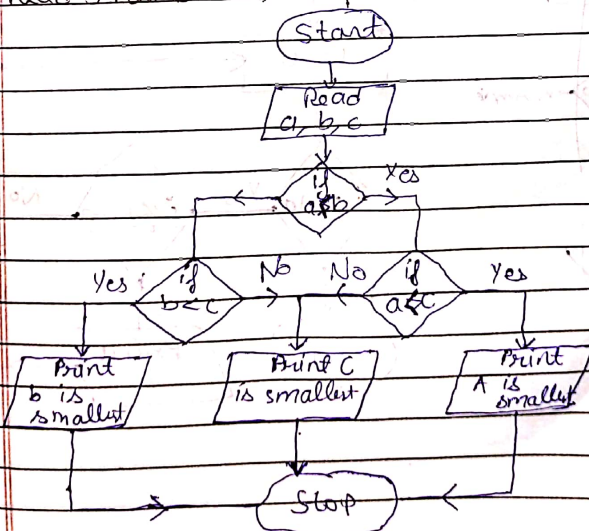 Start
Read
a, b, c
if
a<b
Yes
Yes
if
b<c
No
No
if
a<c
Yes
Print
b is
smallest
Print C
is smallest
Print
A is
smallest
Stop